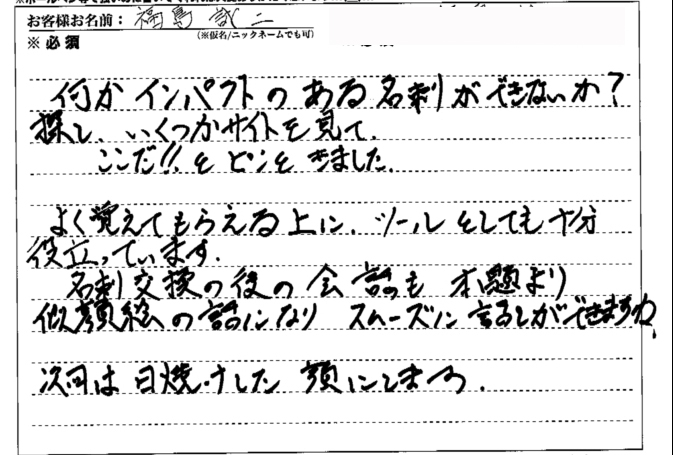 お客様お名前： 福島 誠二
(※仮名/ニックネームでも可)
※必須
何かインパクトのある名刺ができないか？
探し、いくつかサイトを見て、
ここだ!!とピンときました。
よく覚えてもらえる上に、ツールとしても十分
役立っています。
名刺交換の後の会話も本題より
似顔絵の話になりスムーズに話しができますね。
次回は日焼けした顔にしますう。